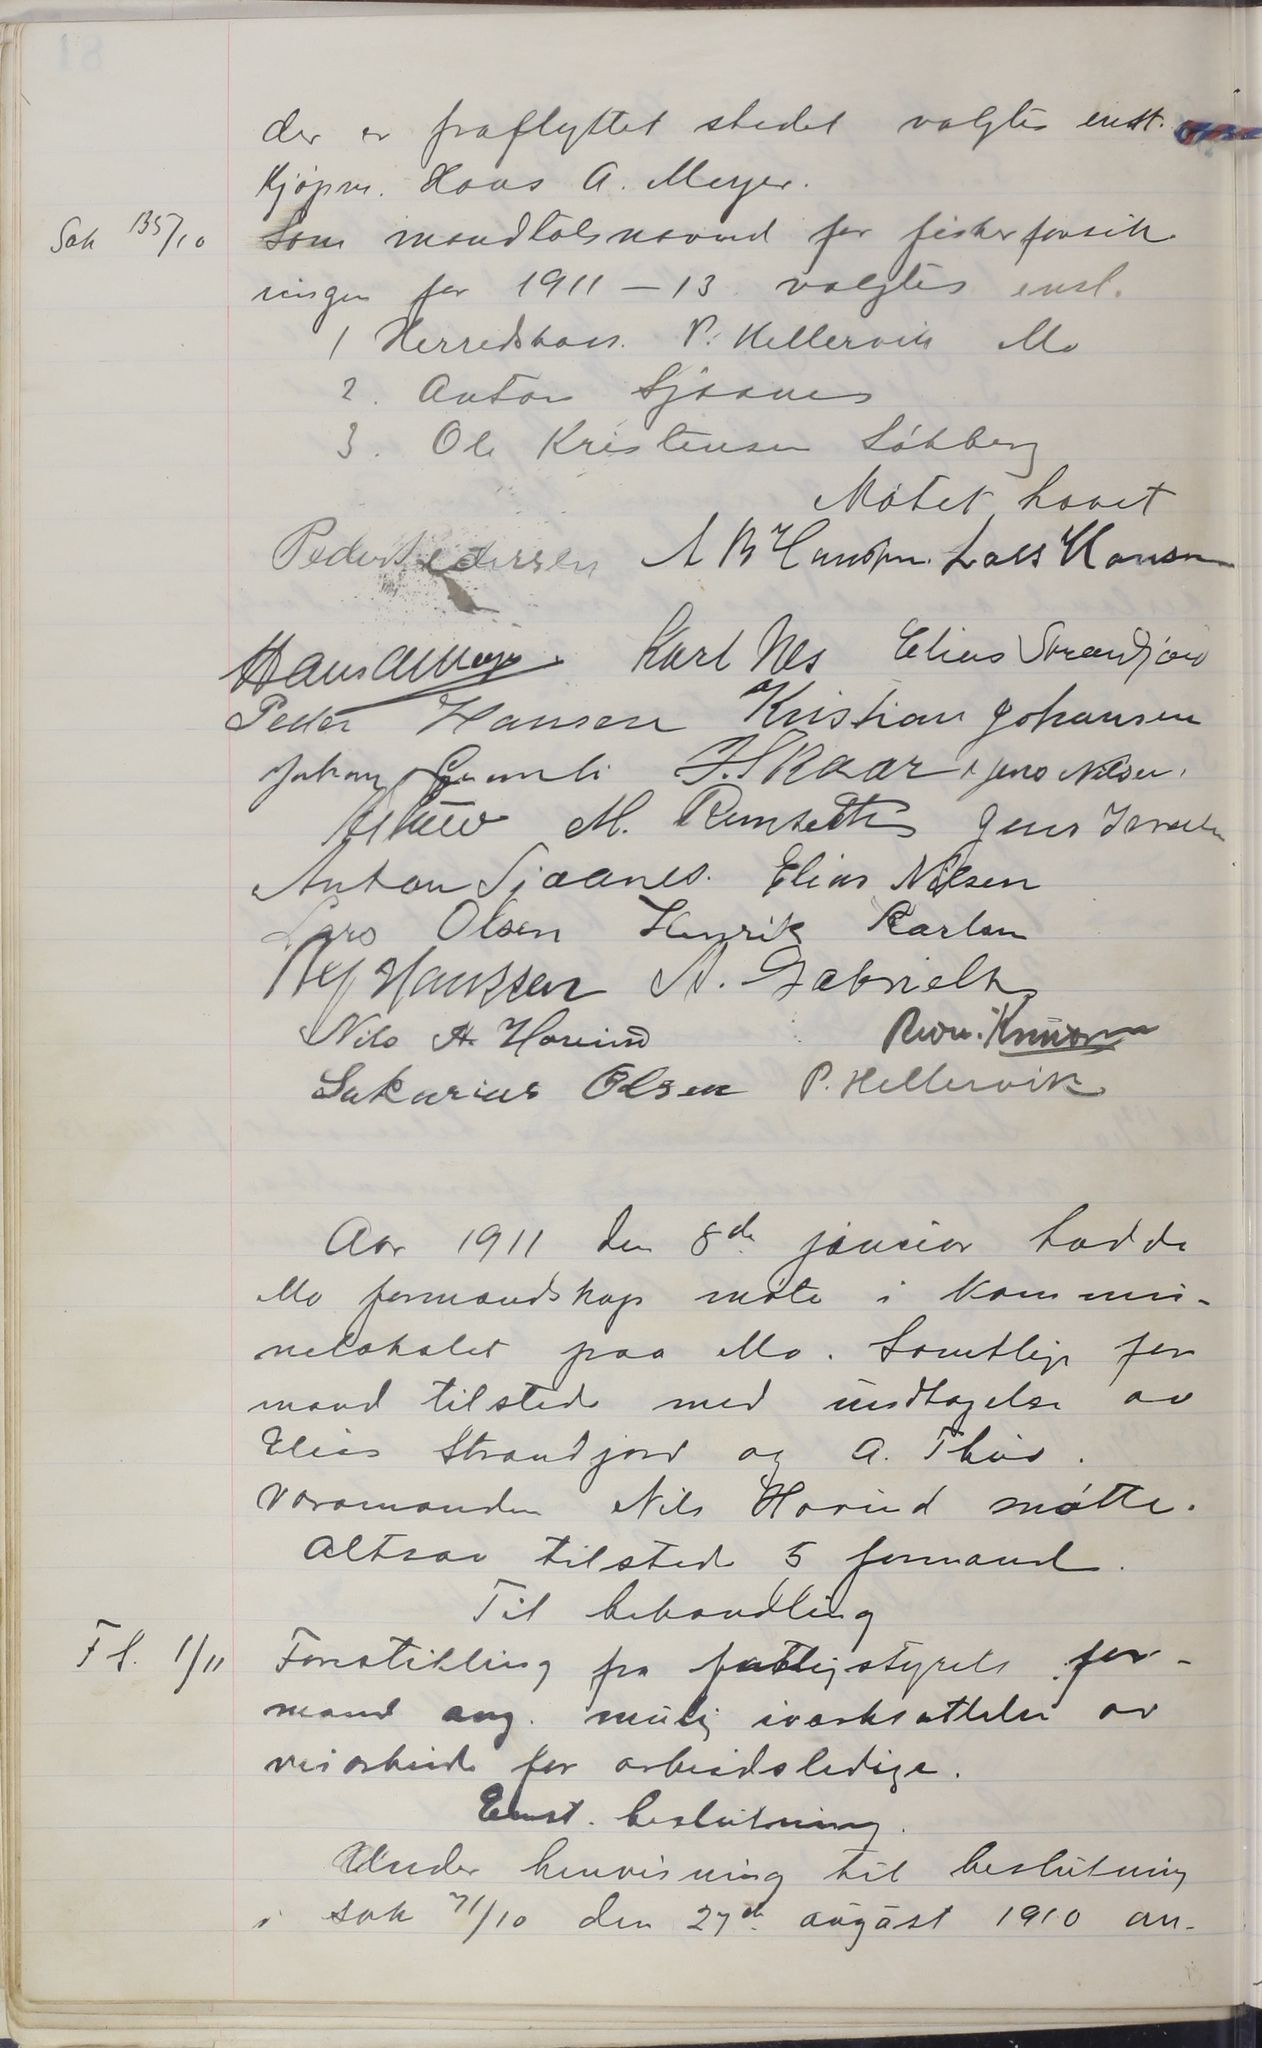 der er fraflyttet stedet valgtes enst.
Kjøpm. Hans A. Meyer.
Sak 135/10 Som mandtalsnævnd for fiskerforsik
ringen for 1911-13 valgtes enst.
1 Herredskas. P. Hellervik Mo
2. Anton Sjaanes
3. Ole Kristensen Løkberg
Møtet hævet
Peder Pedersen Lars Hansen
Hans A Meyer. Karl Nes Elias Strandjord
Peder Hansen Kristian Johansen
Johan Grønli J. Skaar Jens Nilsen.
AThue M. Remseth Jens
Anton Sjaanes. Elias Nilsen
Lars Olsen Henrik Karlsen
Hanssen A. Gabrielsen
Nils A. Hovind
Sakarias Olsen P. Hellervik
Aar 1911 den 8de januar hadde
Mo formandskap møte i kommu-
nelokalet paa Mo. Samtlige for
mænd tilstede med undtagelse av
Elias Strandjord og A. Thue.
Varamanden Nils Hovind møtte.
Altsaa tilstede 5 formænd.
Til behandling
F s. 1/11 Forestilling fra fattigstyrets for-
mand ang. mulig iverksættelse av
veiarbeide for arbeidsledige.
Enst. beslutning.
Under henvisning til beslutning
i sak 71/10 den 27de august 1910 an-